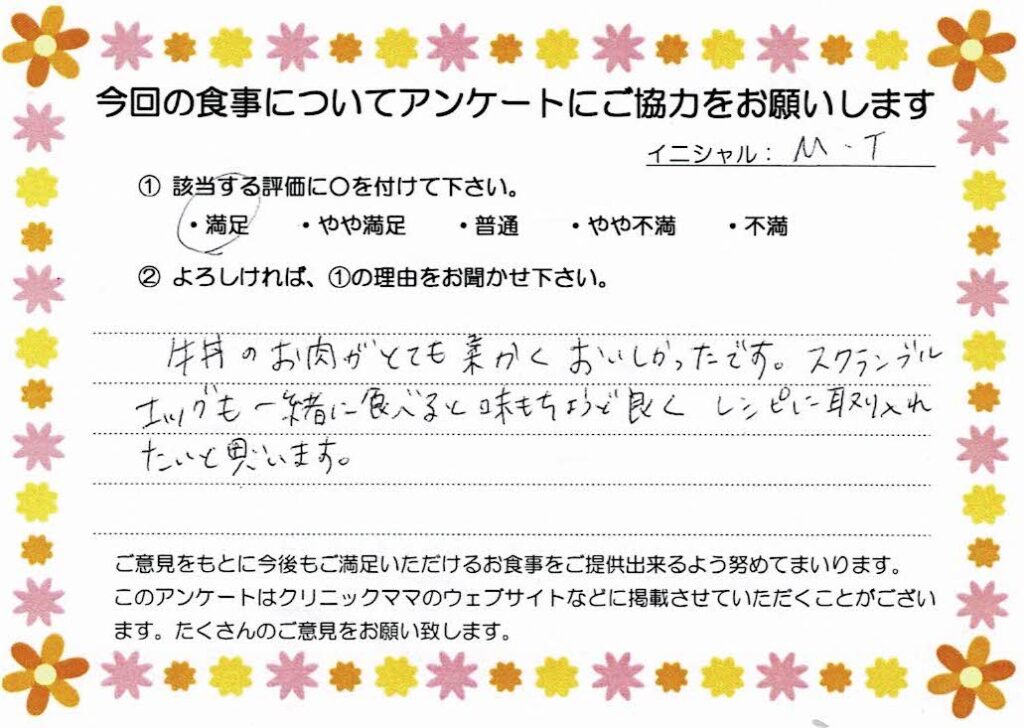 今回の食事についてアンケートにご協力をお願いします
イニシャル： M・T
① 該当する評価に〇を付けて下さい。
・満足 ・やや満足 ・普通 ・やや不満 ・不満
② よろしければ、①の理由をお聞かせ下さい。
牛丼のお肉がとても柔かくおいしかったです。スクランブル
エッグも一緒に食べると味もちょうど良く レシピに取り入れ
たいと思います。
ご意見をもとに今後もご満足いただけるお食事をご提供出来るよう努めてまいります。
このアンケートはクリニックママのウェブサイトなどに掲載させていただくことがござい
ます。たくさんのご意見をお願い致します。